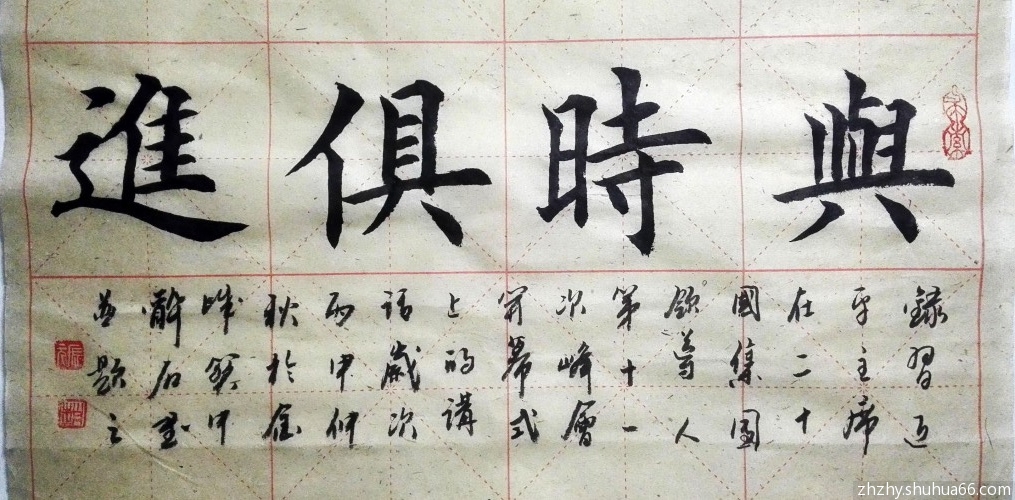 與時俱進
錄習近
平主席
在二十
國集團
領導人
第十一
次峰會
開幕式
上的講
話歲次
丙申仲
秋於金
城甲
石
並題之
zhzhyshuhua66.com